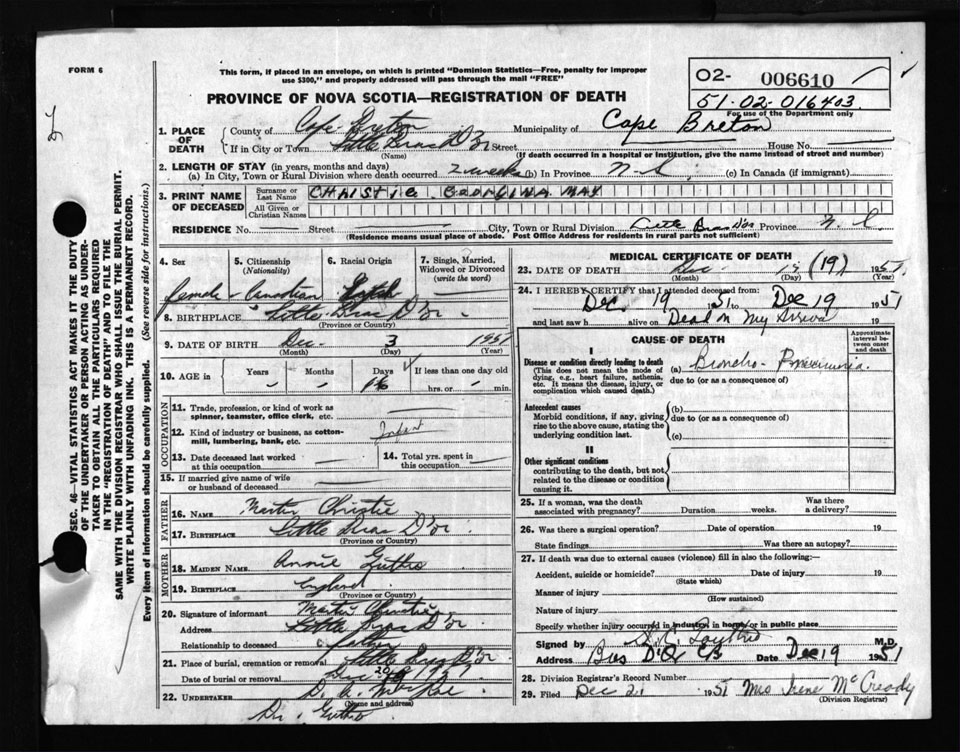 FORM 6
This form, if placed in an envelope, on which is printed "Dominion Statistics—Free, penalty for improper
use $300," and properly addressed will pass through the mail "FREE"
PROVINCE OF NOVA SCOTIA—REGISTRATION OF DEATH
02- 006610
51-02-016403
For use of the Department only
1. PLACE OF DEATH
County of Cape Breton Municipality of Cape Breton
If in City or Town Little Bras D'or Street House No.
(Name) (If death occurred in a hospital or institution, give the name instead of street and number)
2. LENGTH OF STAY (in years, months and days)
(a) In City, Town or Rural Division where death occurred 2 weeks (b) In Province N.S. (c) In Canada (if immigrant)
3. PRINT NAME OF DECEASED
Surname or Last Name CHRISTIE GEORGINA MAY
All Given or Christian Names
RESIDENCE No. Street City, Town or Rural Division Little Bras d'or Province N.S.
(Residence means usual place of abode. Post Office Address for residents in rural parts not sufficient)
4. Sex
5. Citizenship (Nationality)
6. Racial Origin
7. Single, Married, Widowed or Divorced (write the word)
female Canadian
8. BIRTHPLACE Little Bras D'or
(Province or Country)
9. DATE OF BIRTH Dec. 3 1951
(Month) (Day) (Year)
10. AGE in
Years Months Days If less than one day old
16 hrs. or min.
OCCUPATION
11. Trade, profession, or kind of work as spinner, teamster, office clerk, etc.
12. Kind of industry or business, as cotton-mill, lumbering, bank, etc. Infant
13. Date deceased last worked at this occupation
14. Total yrs. spent in this occupation
15. If married give name of wife or husband of deceased
FATHER
16. NAME Martin Christie
17. BIRTHPLACE Little Bras D'or
(Province or Country)
MOTHER
18. MAIDEN NAME Annie Guthro
19. BIRTHPLACE England
(Province or Country)
20. Signature of informant Martin Christie
Address Little Bras D'or
Relationship to deceased father
21. Place of burial, cremation or removal Little Bras D'or
Date of burial or removal Dec 20
22. UNDERTAKER
(Name and address)
MEDICAL CERTIFICATE OF DEATH
23. DATE OF DEATH Dec 19 (19) 1951
(Month) (Day) (Year)
24. I HEREBY CERTIFY that I attended deceased from:
Dec 19 1951 to Dec 19 1951
and last saw h alive on Dead on my Arrival 19
CAUSE OF DEATH
Approximate interval between onset and death
I
Disease or condition directly leading to death
(This does not mean the mode of dying, e.g., heart failure, asthenia, etc. It means the disease, injury, or complication which caused death.)
(a) Broncho-Pneumonia.
due to (or as a consequence of)
Antecedent causes
Morbid conditions, if any, giving rise to the above cause, stating the underlying condition last.
(b)
due to (or as a consequence of)
(c)
II
Other significant conditions
contributing to the death, but not related to the disease or condition causing it.
25. If a woman, was the death associated with pregnancy? Duration weeks. Was there a delivery?
26. Was there a surgical operation? Date of operation 19
State findings Was there an autopsy?
27. If death was due to external causes (violence) fill in also the following:—
Accident, suicide or homicide? Date of injury 19
(State which)
Manner of injury
(How sustained)
Nature of injury
Specify whether injury occurred in industry, in home, or in public place
Signed by M.D.
Address Bras D'Or CB Date Dec 19 1951
28. Division Registrar's Record Number
29. Filed Dec 21 1951 Mrs Irene McCready
(Division Registrar)
SEC. 46—VITAL STATISTICS ACT MAKES IT THE DUTY
OF THE UNDERTAKER OR PERSON ACTING AS UNDER-
TAKER TO OBTAIN ALL THE PARTICULARS REQUIRED
IN THE "REGISTRATION OF DEATH" AND TO FILE THE
SAME WITH THE DIVISION REGISTRAR WHO SHALL ISSUE THE BURIAL PERMIT.
WRITE PLAINLY WITH UNFADING INK. THIS IS A PERMANENT RECORD.
Every item of information should be carefully supplied. (See reverse side for instructions.)